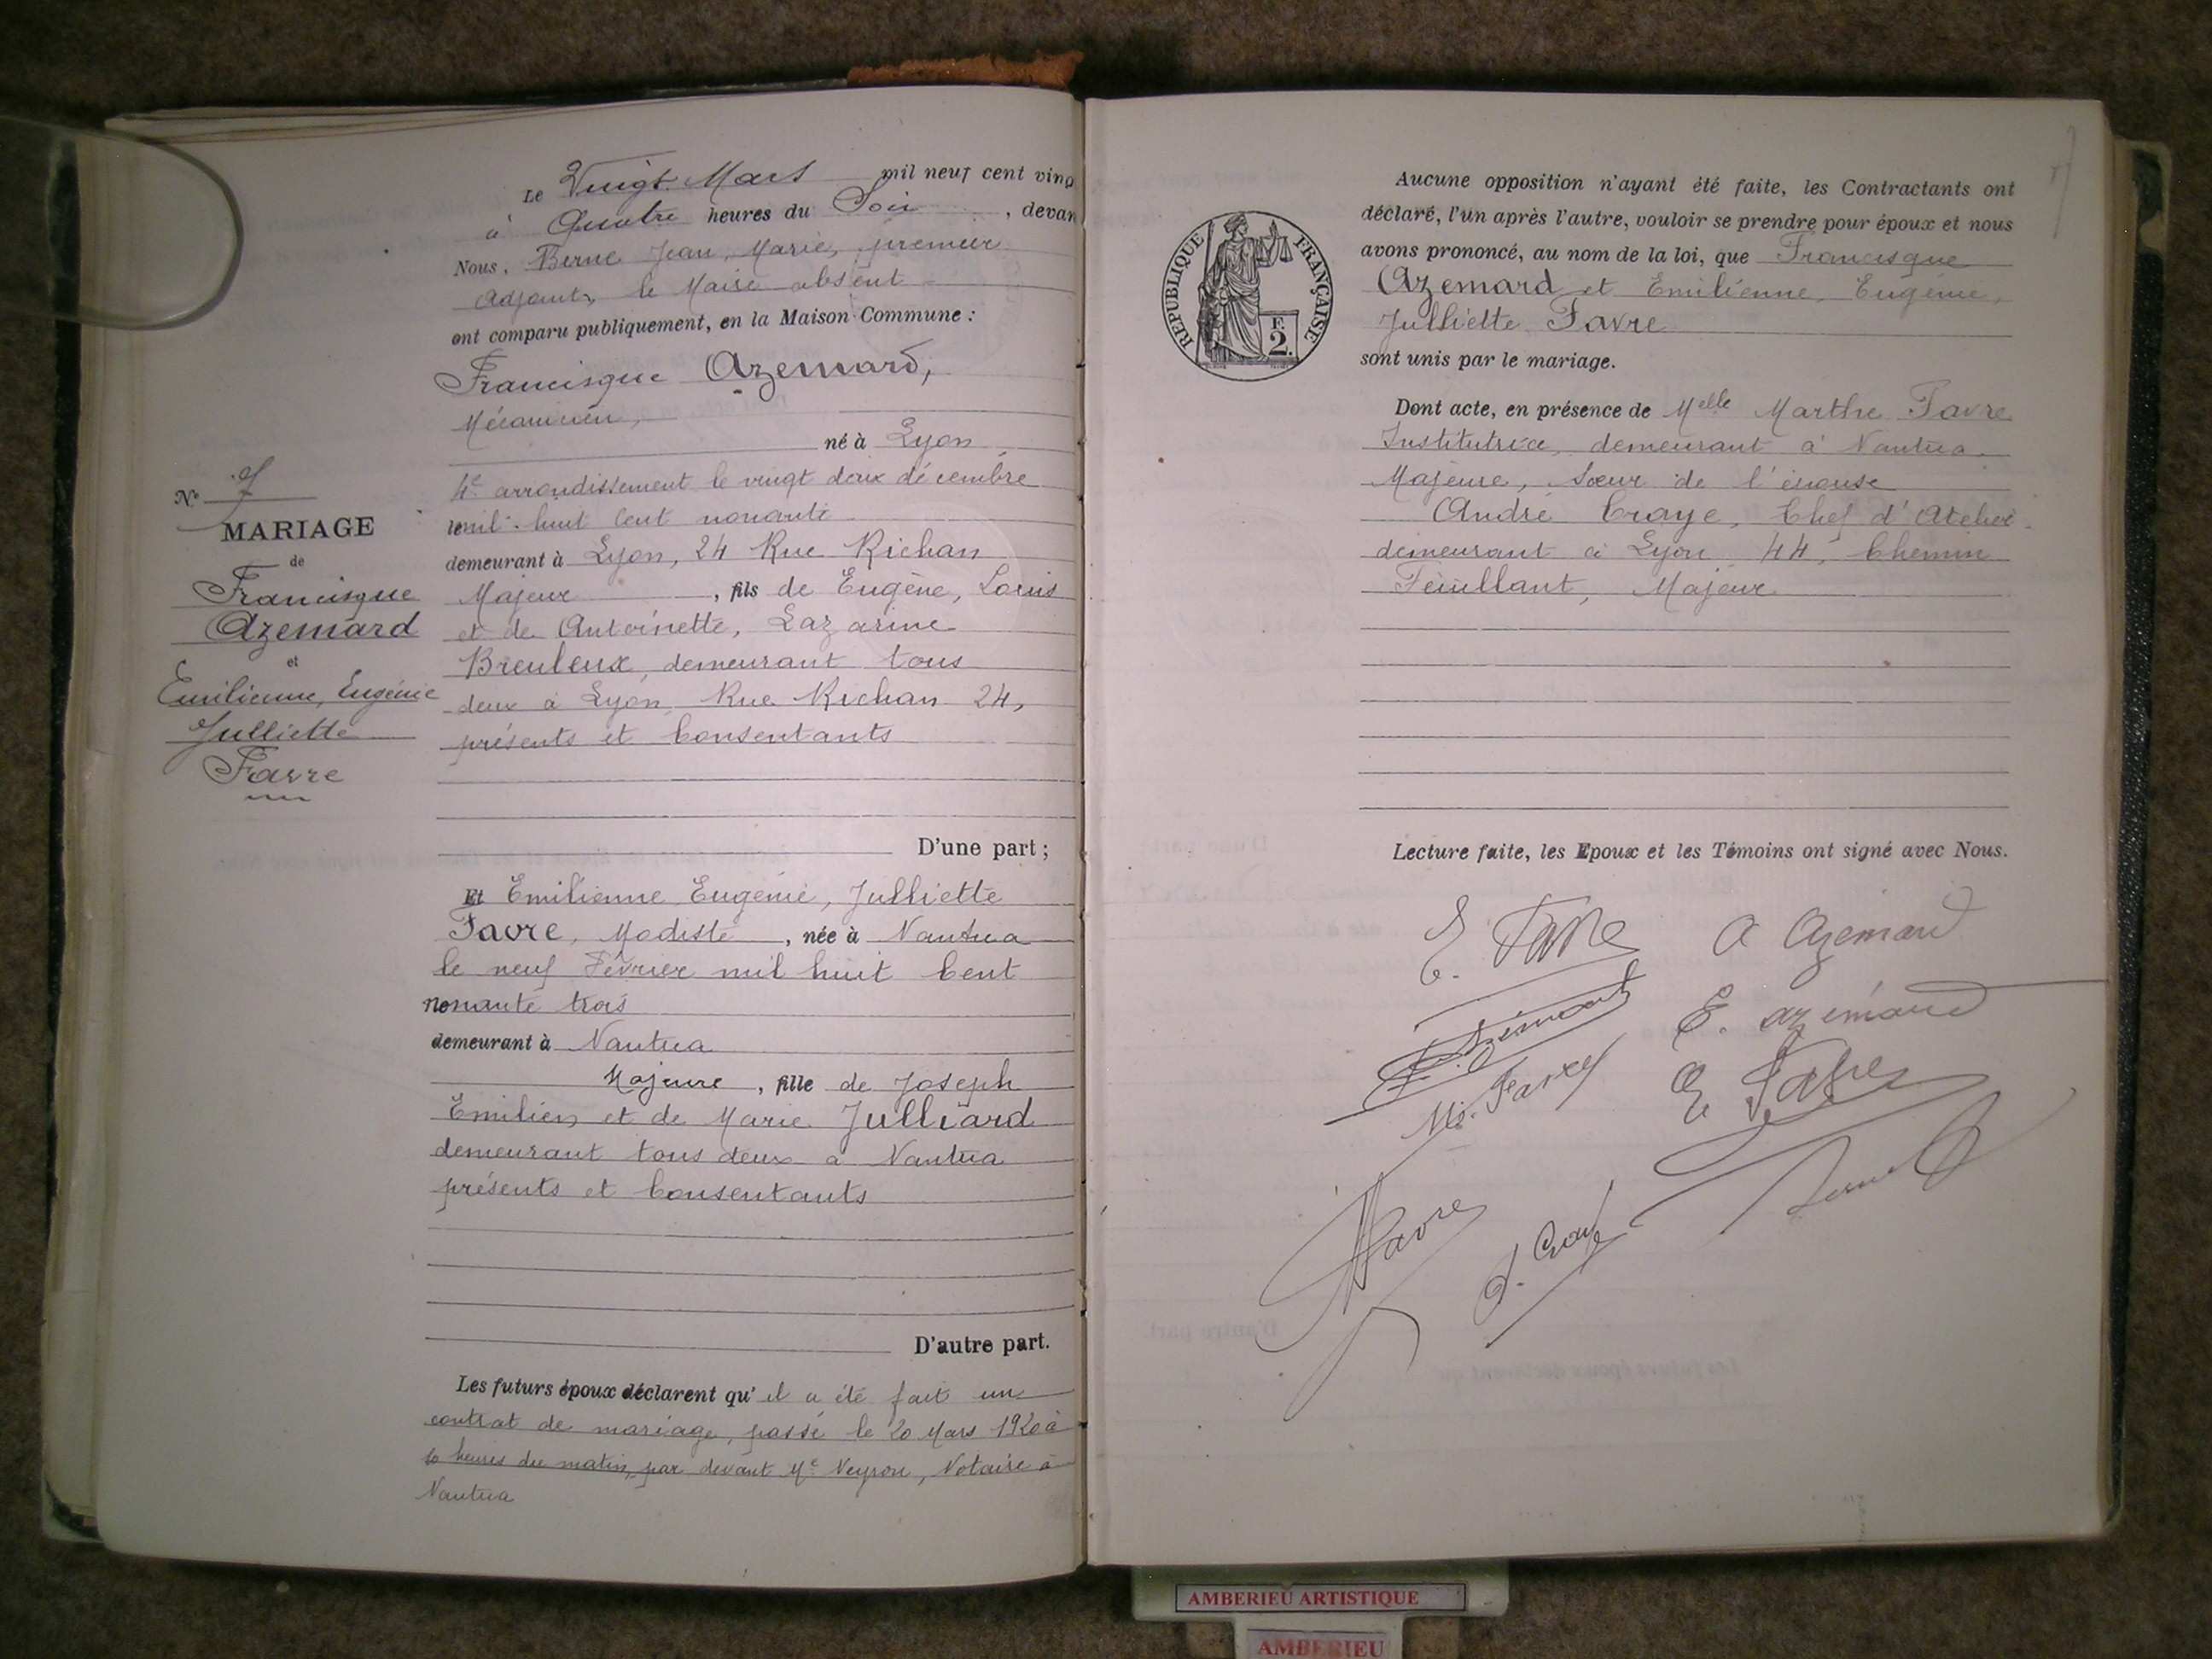 Le Vingt Mars mil neuf cent ving
à Quatre heures du Soir, devan
Nous, Berne Jean, Marie, premier
Adjoint, le Maire absent
ont comparu publiquement, en la Maison Commune :
Francisque Azemard,
Mécanicien,
né à Lyon
4e arrondissement le vingt deux décembre
mil huit cent nonante
demeurant à Lyon, 24 Rue Richan
Majeur, fils de Eugène, Louis
et de Antoinette, Lazarine
Breuleux, demeurant tous
deux à Lyon, Rue Richan 24,
présents et Consentants
D'une part ;
N° 7
MARIAGE
de
Francisque
Azemard
et
Emilienne, Eugénie
Julliette
Favre
Et Emilienne Eugénie, Julliette
Favre, Modiste, née à Nantua
le neuf Février mil huit Cent
nonante trois
demeurant à Nantua
Majeure, fille de Joseph
Emilien et de Marie Julliard
demeurant tous deux à Nantua
présents et Consentants
D'autre part.
Les futurs époux déclarent qu'il a été fait un
contrat de mariage, passé le 20 Mars 1920 à
10 heures du matin, par devant Me Neyron, Notaire à
Nantua
REPUBLIQUE FRANÇAISE
F.
2.
Aucune opposition n'ayant été faite, les Contractants ont
déclaré, l'un après l'autre, vouloir se prendre pour époux et nous
avons prononcé, au nom de la loi, que Francisque
Azemard et Emilienne, Eugénie,
Julliette Favre
sont unis par le mariage.
Dont acte, en présence de Melle Marthe Favre
Institutrice, demeurant à Nantua
Majeure, Sœur de l'épouse
André Craye, Chef d'Atelier
demeurant à Lyon 44, Chemin
Feuillant, Majeur
Lecture faite, les Epoux et les Témoins ont signé avec Nous.
E. Favre
A Azemard
E. azémard
M. Favre
E Favre
Favre
A. Craye
AMBERIEU ARTISTIQUE
AMBERIEU